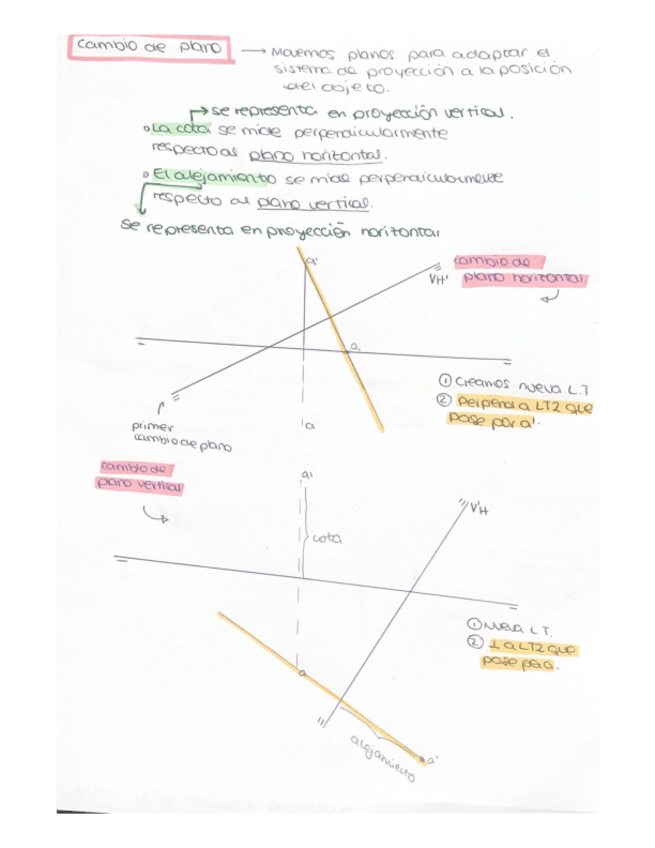 cambio de plano → Movemos planos para adaptar el
sistema de proyección a la posición
del objeto.
se representa en proyección vertical.
La cota se mide perpendicularmente
respecto al plano horizontal.
El alejamiento se mide perpendicularmente
respecto al plano vertical.
se representa en proyección horizontal
a'
VH'
cambio de
plano horizontal
a,
① Creamos nueva L.T
② Perpend a LT2 que
pase por a'.
a
primer
cambio de plano
cambio de
plano vertical
a'
V'H
cota
① Nueva L T.
② ⊥ a LT2 que
pase por a.
a
alejamiento
a'